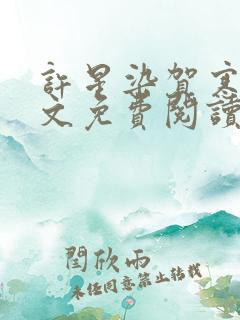 許星染賀寒
文免費閱讀
閆欣雨
未經同意禁止轉載